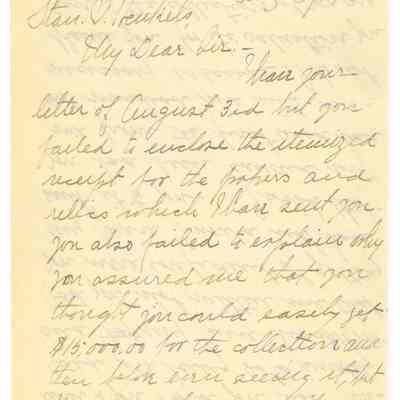 Stan. V. Henkels,
My Dear Sir. -
I have your
letter of August 3rd but you
failed to enclose the itemized
receipt for the papers and
relics which I have sent you.
you also failed to explain why
you assured me that you
thought you could easily get
$15,000.00 for the collection and
then before even seeing it, that